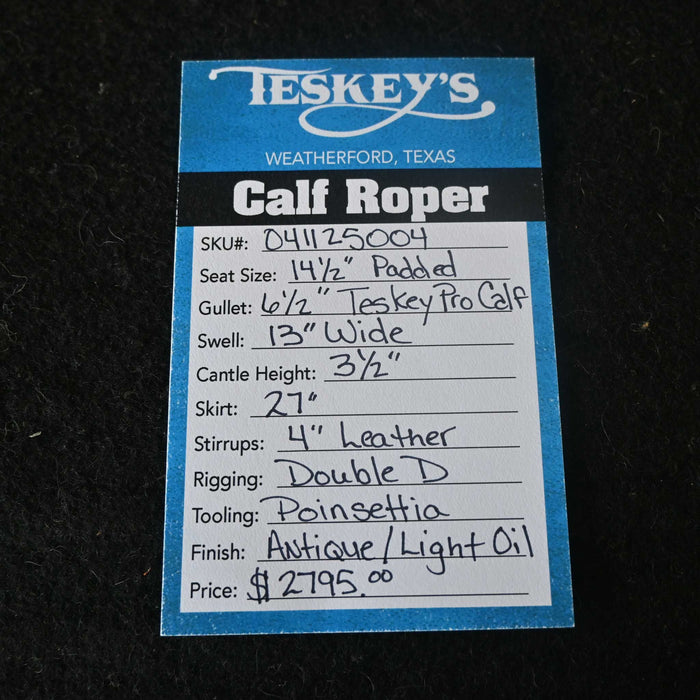 TESKEY'S
WEATHERFORD, TEXAS
Calf Roper
SKU#: 041125004
Seat Size: 14 1/2" Padded
Gullet: 6 1/2" Teskey Pro Calf
Swell: 13" Wide
Cantle Height: 3 1/2"
Skirt: 27"
Stirrups: 4" Leather
Rigging: Double D
Tooling: Poinsettia
Finish: Antique/Light Oil
Price: $2795.00